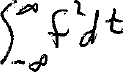 ∫_{-∞}^{∞} f² dt